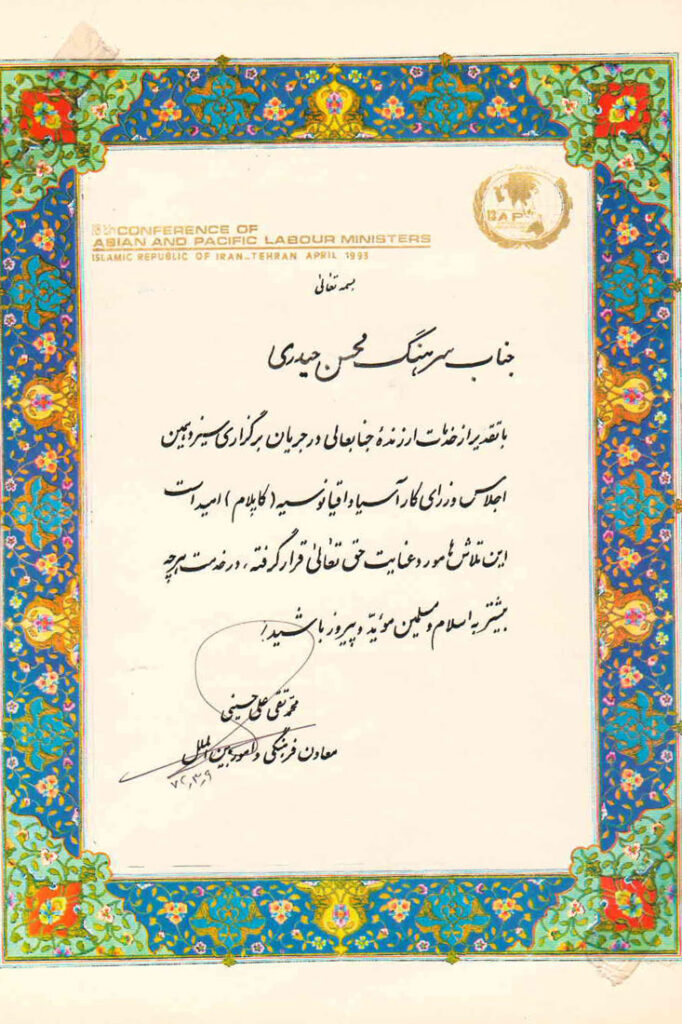 13th CONFERENCE OF
ASIAN AND PACIFIC LABOUR MINISTERS
ISLAMIC REPUBLIC OF IRAN_TEHRAN APRIL 1993
بسمه تعالیٰ
جناب سرهنگ محسن حیدری
با تقدیر از خدمات ارزندهٔ جنابعالی در جریان برگزاری سیزدهمین
اجلاس وزرای کار آسیا و اقیانوسیه (کاپلام) امید است
این تلاش‌ها مورد عنایت حق تعالیٰ قرار گرفته، در خدمت هرچه
بیشتر به اسلام و مسلمین مؤیّد و پیروز باشید؛
محمّد تقی علی حسینی
معاون فرهنگی و امور بین الملل
۷۲,۳,۹